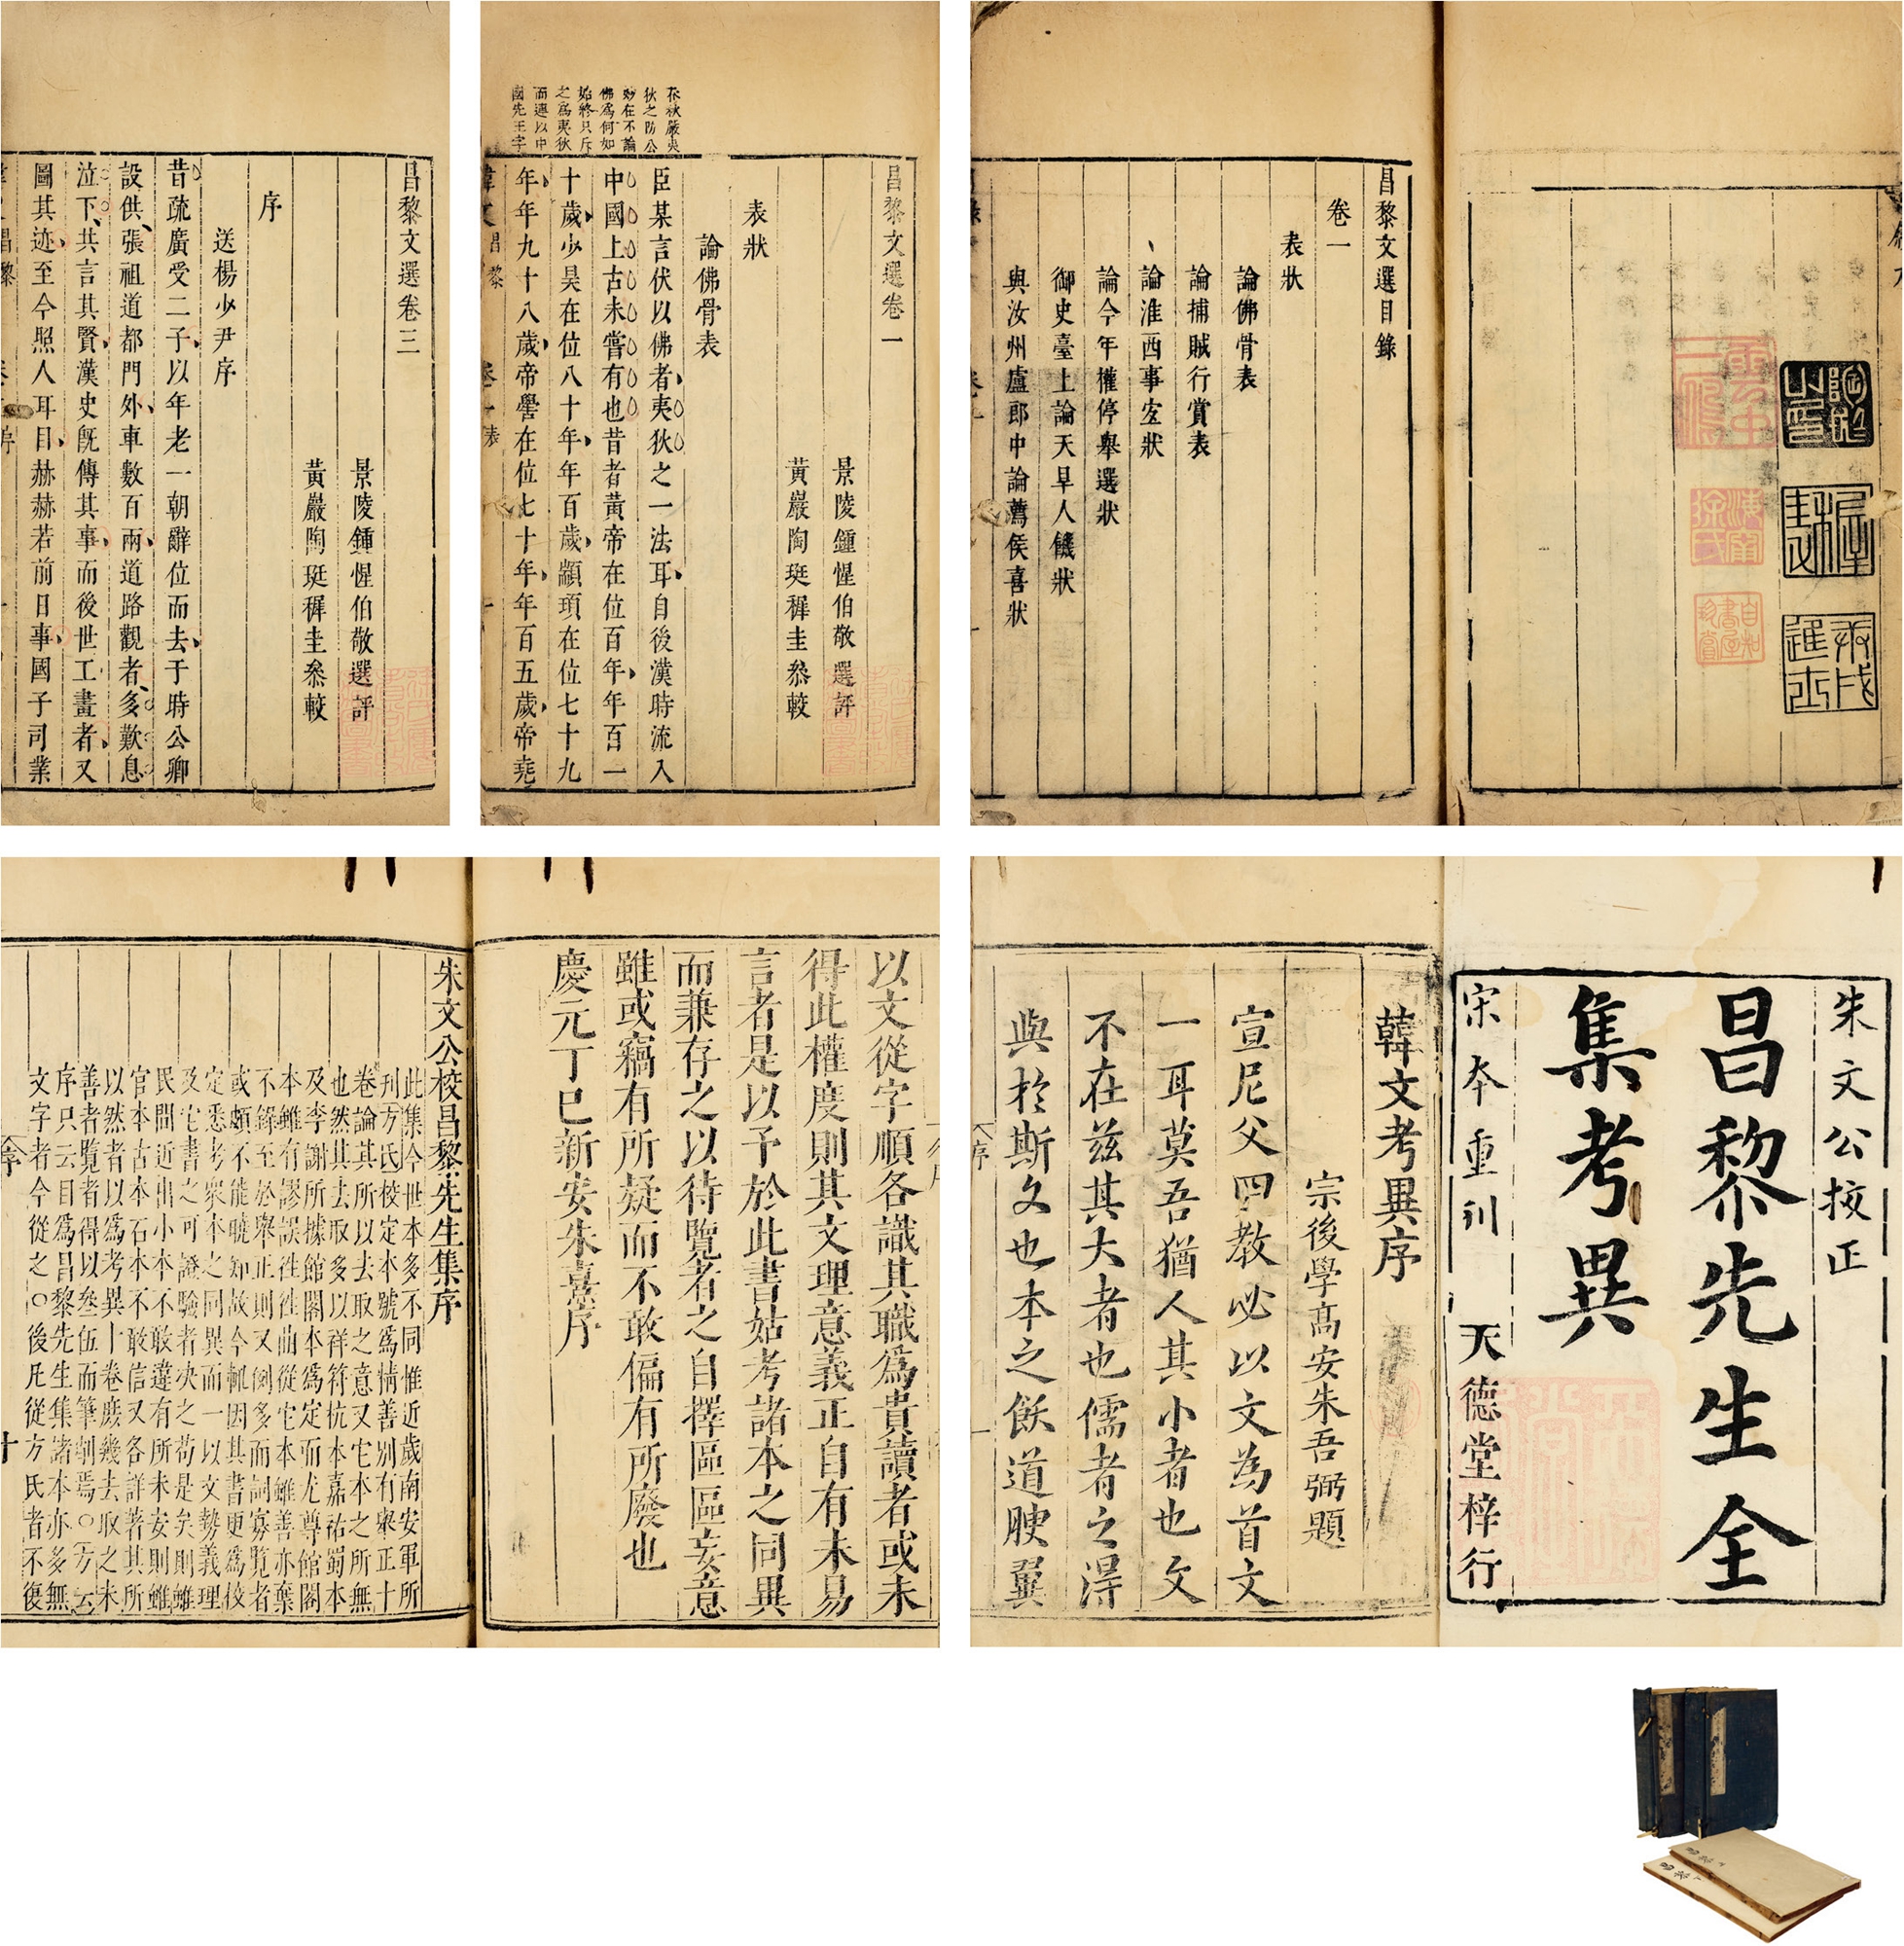 陶珽之印
稺圭父
庚戌進士
漢甯徐氏
自知書屋珍賞
昌黎文選目錄
卷一
表狀
論佛骨表
論捕賊行賞表
論淮西事宜狀
論今年權停舉選狀
御史臺上論天旱人饑狀
與汝州盧郎中論薦侯喜狀
春秋嚴夷
狄之防公
妙在不論
佛為何如
始終只斥
之為夷狄
而連以中
國先王字
昌黎文選卷一
景陵鍾惺伯敬選評
黃巖陶珽穉圭叅較
表狀
論佛骨表
臣某言伏以佛者夷狄之一法耳自後漢時流入
中國上古未嘗有也昔者黃帝在位百年年百一
十歲少昊在位八十年年百歲顓頊在位七十九
年年九十八歲帝嚳在位七十年年百五歲帝堯
昌黎文選卷三
景陵鍾惺伯敬選評
黃巖陶珽穉圭叅較
序
送楊少尹序
昔疏廣受二子以年老一朝辭位而去于時公卿
設供張祖道都門外車數百兩道路觀者多歎息
泣下共言其賢漢史既傳其事而後世工畫者又
圖其迹至今照人耳目赫赫若前日事國子司業
朱文公挍正
昌黎先生全
集考異
宋本重刊 天德堂梓行
韓文考異序
宗後學高安朱吾弼題
宣尼父四教必以文為首文
一耳莫吾猶人其小者也文
不在兹其大者也儒者之得
與於斯文也本之飫道腴翼
以文從字順各識其職爲貴讀者或未
得此權度則其文理意義正自有未易
言者是以予於此書姑考諸本之同異
而兼存之以待覽者之自擇區區妄意
雖或竊有所疑而不敢偏有所廢也
慶元丁巳新安朱熹序
朱文公校昌黎先生集序
此集今世本多不同惟近歲南安軍所
刊方氏校定本號爲精善別有舉正十
卷論其所以去取之意又它本之所無
也然其去取多以祥符杭本嘉祐蜀本
及李謝所據館閣本爲定而尤尊館閣
本雖有謬誤往往曲從它本雖善亦棄
不錄至於舉正則又例多而詞寡覽者
或頗不能曉知故今輒因其書更爲校
定悉考衆本之同異而一以文勢義理
及它書之可證驗者决之苟是矣則雖
民間近出小本不敢違有所未安則雖
官本古本石本不敢信又各詳著其所
以然者以爲考異十卷庶幾去取之未
善者覽者得以叅伍而筆削焉○方云
序只云目爲昌黎先生集諸本亦多無
文字者今從之○後凡從方氏者不復